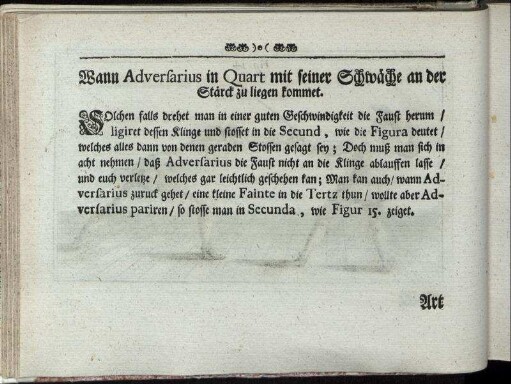 )o(
Wann Adversarius in Quart mit seiner Schwäche an der
Stärck zu liegen kommet.
SOlchen falls drehet man in einer guten Geschwindigkeit die Faust herum /
ligiret dessen Klinge und stosset in die Secund, wie die Figura deutet /
welches alles dann von denen geraden Stossen gesagt sey; Doch muß man sich in
acht nehmen / daß Adversarius die Faust nicht an die Klinge ablauffen lasse /
und euch verletze / welches gar leichtlich geschehen kan; Man kan auch / wann Ad-
versarius zuruck gehet / eine kleine Fainte in die Tertz thun / wollte aber Ad-
versarius pariren / so stosse man in Secunda, wie Figur 15. zeiget.
Art